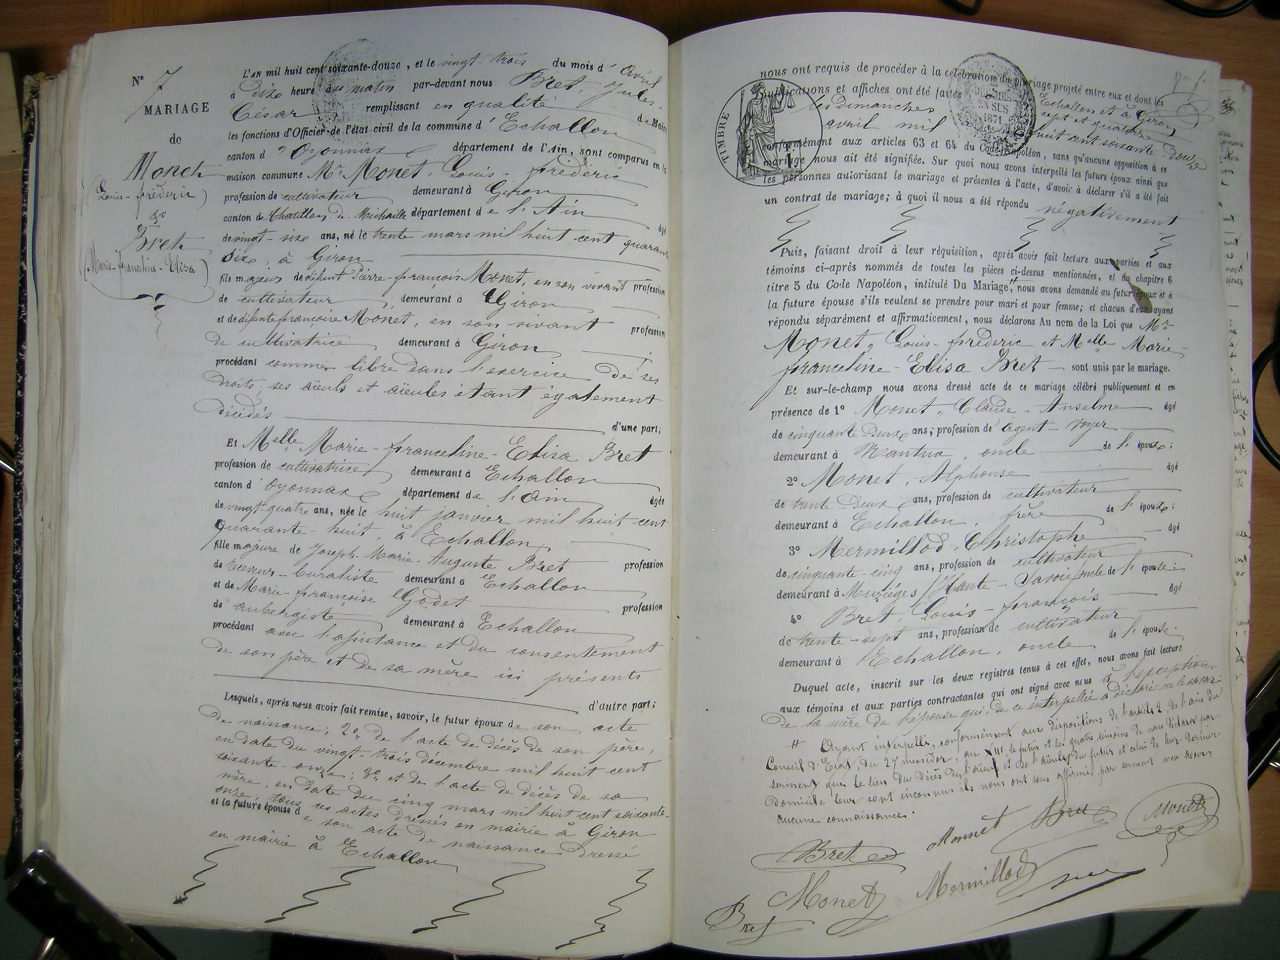 N° 7
MARIAGE
de
Monet
Louis-fréderic
&
Bret
(Marie-franceline-Elisa)
L'AN mil huit cent soixante-douze, et le vingt trois du mois d'avril
à dix heures du matin par-devant nous Bret, Jules-
César remplissant en qualité de Maire
les fonctions d'Officier de l'état civil de la commune d'Echallon
canton d'Oyonnax département de l'Ain, sont comparus en la
maison commune Mr Monet, Louis-fréderic
profession de cultivateur demeurant à Giron
canton de Chatillon de Michaille département de l'Ain âgé
de vingt-six ans, né le trente mars mil huit cent quarante
six, à Giron
fils majeur de défunt Pierre-françois Monet, en son vivant profession
de cultivateur demeurant à Giron
et de défunte françoise Monet, en son vivant profession
de cultivatrice demeurant à Giron
procédant comme libre dans l'exercice de ses
droits, ses aïeuls et aïeules étant également
décédés d'une part;
Et Melle Marie-franceline-Elisa Bret
profession de cultivatrice demeurant à Echallon
canton d'Oyonnax département de l'ain âgée
de vingt quatre ans, née le huit janvier mil huit-cent
quarante-huit, à Echallon
fille majeure de Joseph-Marie-Auguste Bret profession
de receveur-buraliste demeurant à Echallon
et de Marie-françoise Godet profession
d'aubergiste demeurant à Echallon
procédant avec l'assistance et du consentement
de son père et de sa mère ici présents
d'autre part;
Lesquels, après nous avoir fait remise, savoir, le futur époux de son acte
de naissance; 2° de l'acte de décès de son père,
en date du vingt-trois décembre mil huit cent
soixante-onze; 3° et de l'acte de décès de sa
mère, en date du cinq mars mil huit cent soixante
onze, tous ces actes dressés en mairie à Giron
et la future épouse de son acte de naissance dressé
en mairie à Echallon
nous ont requis de procéder à la célébration du mariage projeté entre eux et dont les
publications et affiches ont été faites Echallon et à Giron
les Dimanches sept et quatorze
avril mil huit cent soixante-douze
TIMBRE
2 DES SUS
1871
conformément aux articles 63 et 64 du Code Napoléon, sans qu'aucune opposition à ce
mariage nous ait été signifiée. Sur quoi nous avons interpellé les futurs époux ainsi que
les personnes autorisant le mariage et présentes à l'acte, d'avoir à déclarer s'il a été fait
un contrat de mariage; à quoi il nous a été répondu négativement
Puis, faisant droit à leur réquisition, après avoir fait lecture aux parties et aux
témoins ci-après nommés de toutes les pièces ci-dessus mentionnées, et du chapitre 6
titre 5 du Code Napoléon, intitulé Du Mariage, nous avons demandé au futur époux et à
la future épouse s'ils veulent se prendre pour mari et pour femme; et chacun d'eux ayant
répondu séparément et affirmativement, nous déclarons Au nom de la Loi que Mr
Monet, Louis-fréderic et Melle Marie-
franceline-Elisa Bret sont unis par le mariage.
Et sur-le-champ nous avons dressé acte de ce mariage célébré publiquement et en
présence de 1° Monet, Claude-Anselme âgé
de cinquante deux ans; profession d'agent-voyer
demeurant à Nantua, oncle de l'époux;
2° Monet, Alphonse âgé
de trente deux ans, profession de cultivateur
demeurant à Echallon, frère de l'époux;
3° Mermillod, Christophe âgé
de cinquante-cinq ans, profession de cultivateur
demeurant à Musièges (Haute-Savoie) oncle de l'épouse
4° Bret, Louis-françois âgé
de trente-sept ans, profession de cultivateur
demeurant à Echallon, oncle, de l'épouse.
Duquel acte, inscrit sur les deux registres tenus à cet effet, nous avons fait lecture
aux témoins et aux parties contractantes qui ont signé avec nous à l'exception
de la mère de l'épouse qui de ce interpellée a déclaré ne le savoir
# Ayant interpellé, conformément aux dispositions de l'avis du
Conseil d'Etat, du 27 le futur et les quatre témoins de nous déclarer par
serment que le lieu du décès des aïeuls et aïeules du futur et celui de leur dernier
domicile leur sont inconnus ils nous ont tous affirmé par serment n'en avoir
aucune connaissance.
Bret Monnet Bret Monet
Monet Mermillod
Bret